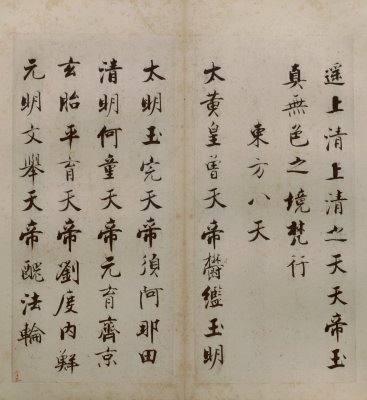 遥上清上清之天天帝玉
真無色之境梵行
東方八天
太黃皇曾天帝欝鑑玉明
太明玉完天帝須阿那田
清明何童天帝元育齊京
玄胎平育天帝劉度内鮮
元明文舉天帝醜法輪